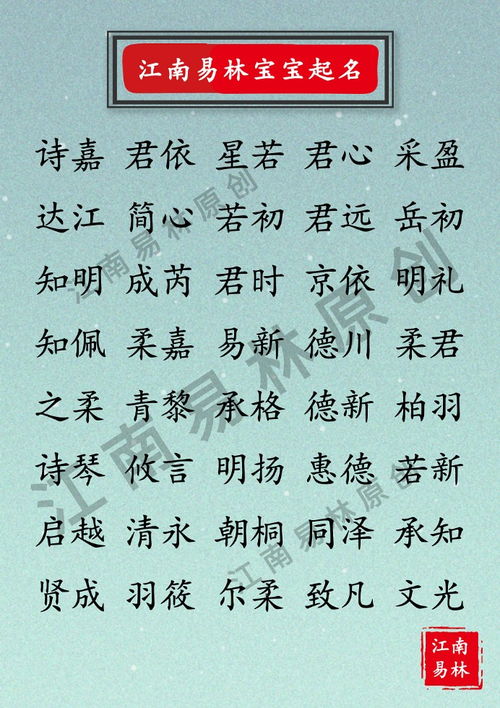 江南易林宝宝起名
诗嘉 君依 星若 君心 采盈
达江 简心 若初 君远 岳初
知明 成芮 君时 京依 明礼
知佩 柔嘉 易新 德川 柔君
之柔 青黎 承格 德新 柏羽
诗琴 攸言 明扬 惠德 若新
启越 清永 朝桐 同泽 承知
贤成 羽筱 尔柔 致凡 文光
江南易林原创
江南易林原创
江南易林原创
江南
易林